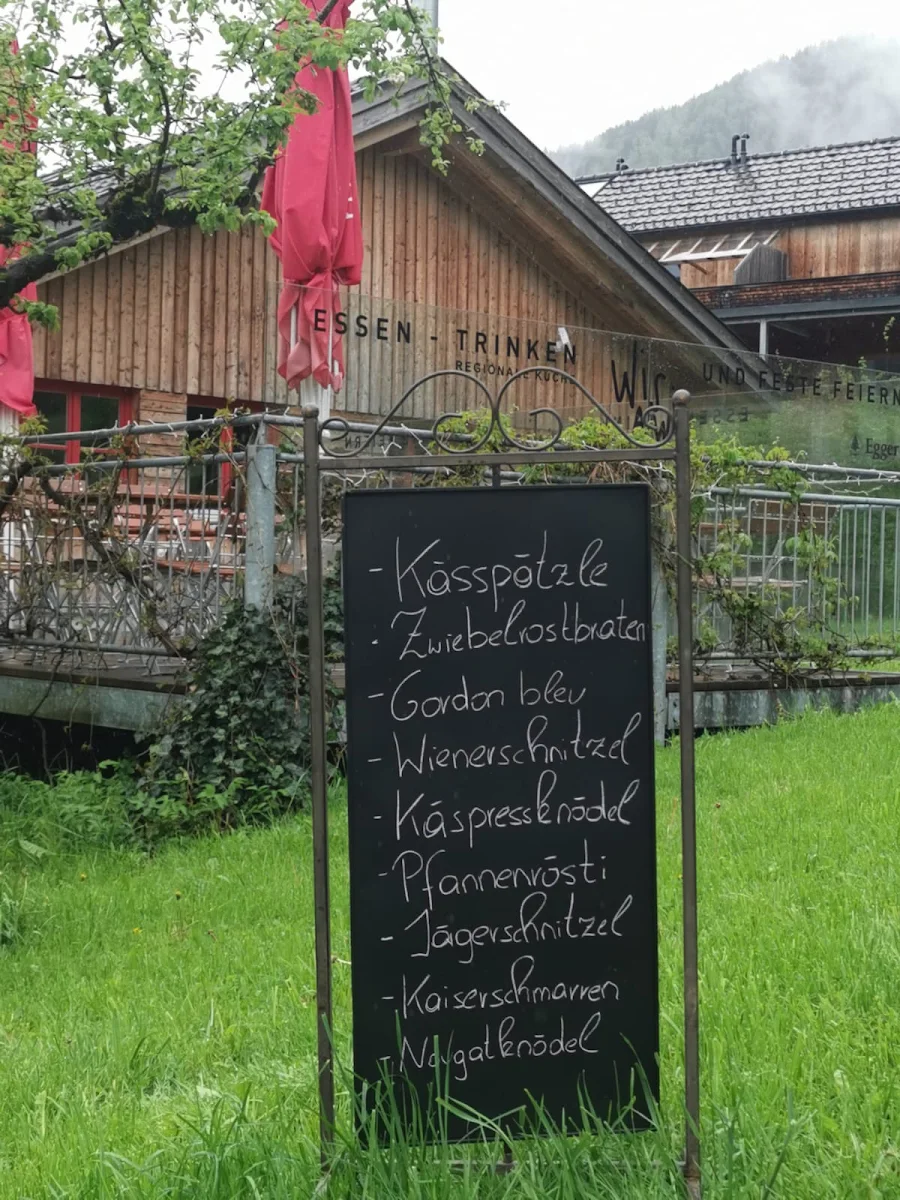 ESSEN - TRINKEN
REGIONALE KÜCHE
Wir
UND FESTE FEIERN
Egger
- Kässpätzle
- Zwiebelrostbraten
- Gordon bleu
- Wienerschnitzel
- Käspressknödel
- Pfannenrösti
- Jägerschnitzel
- Kaiserschmarren
- Nougatknödel